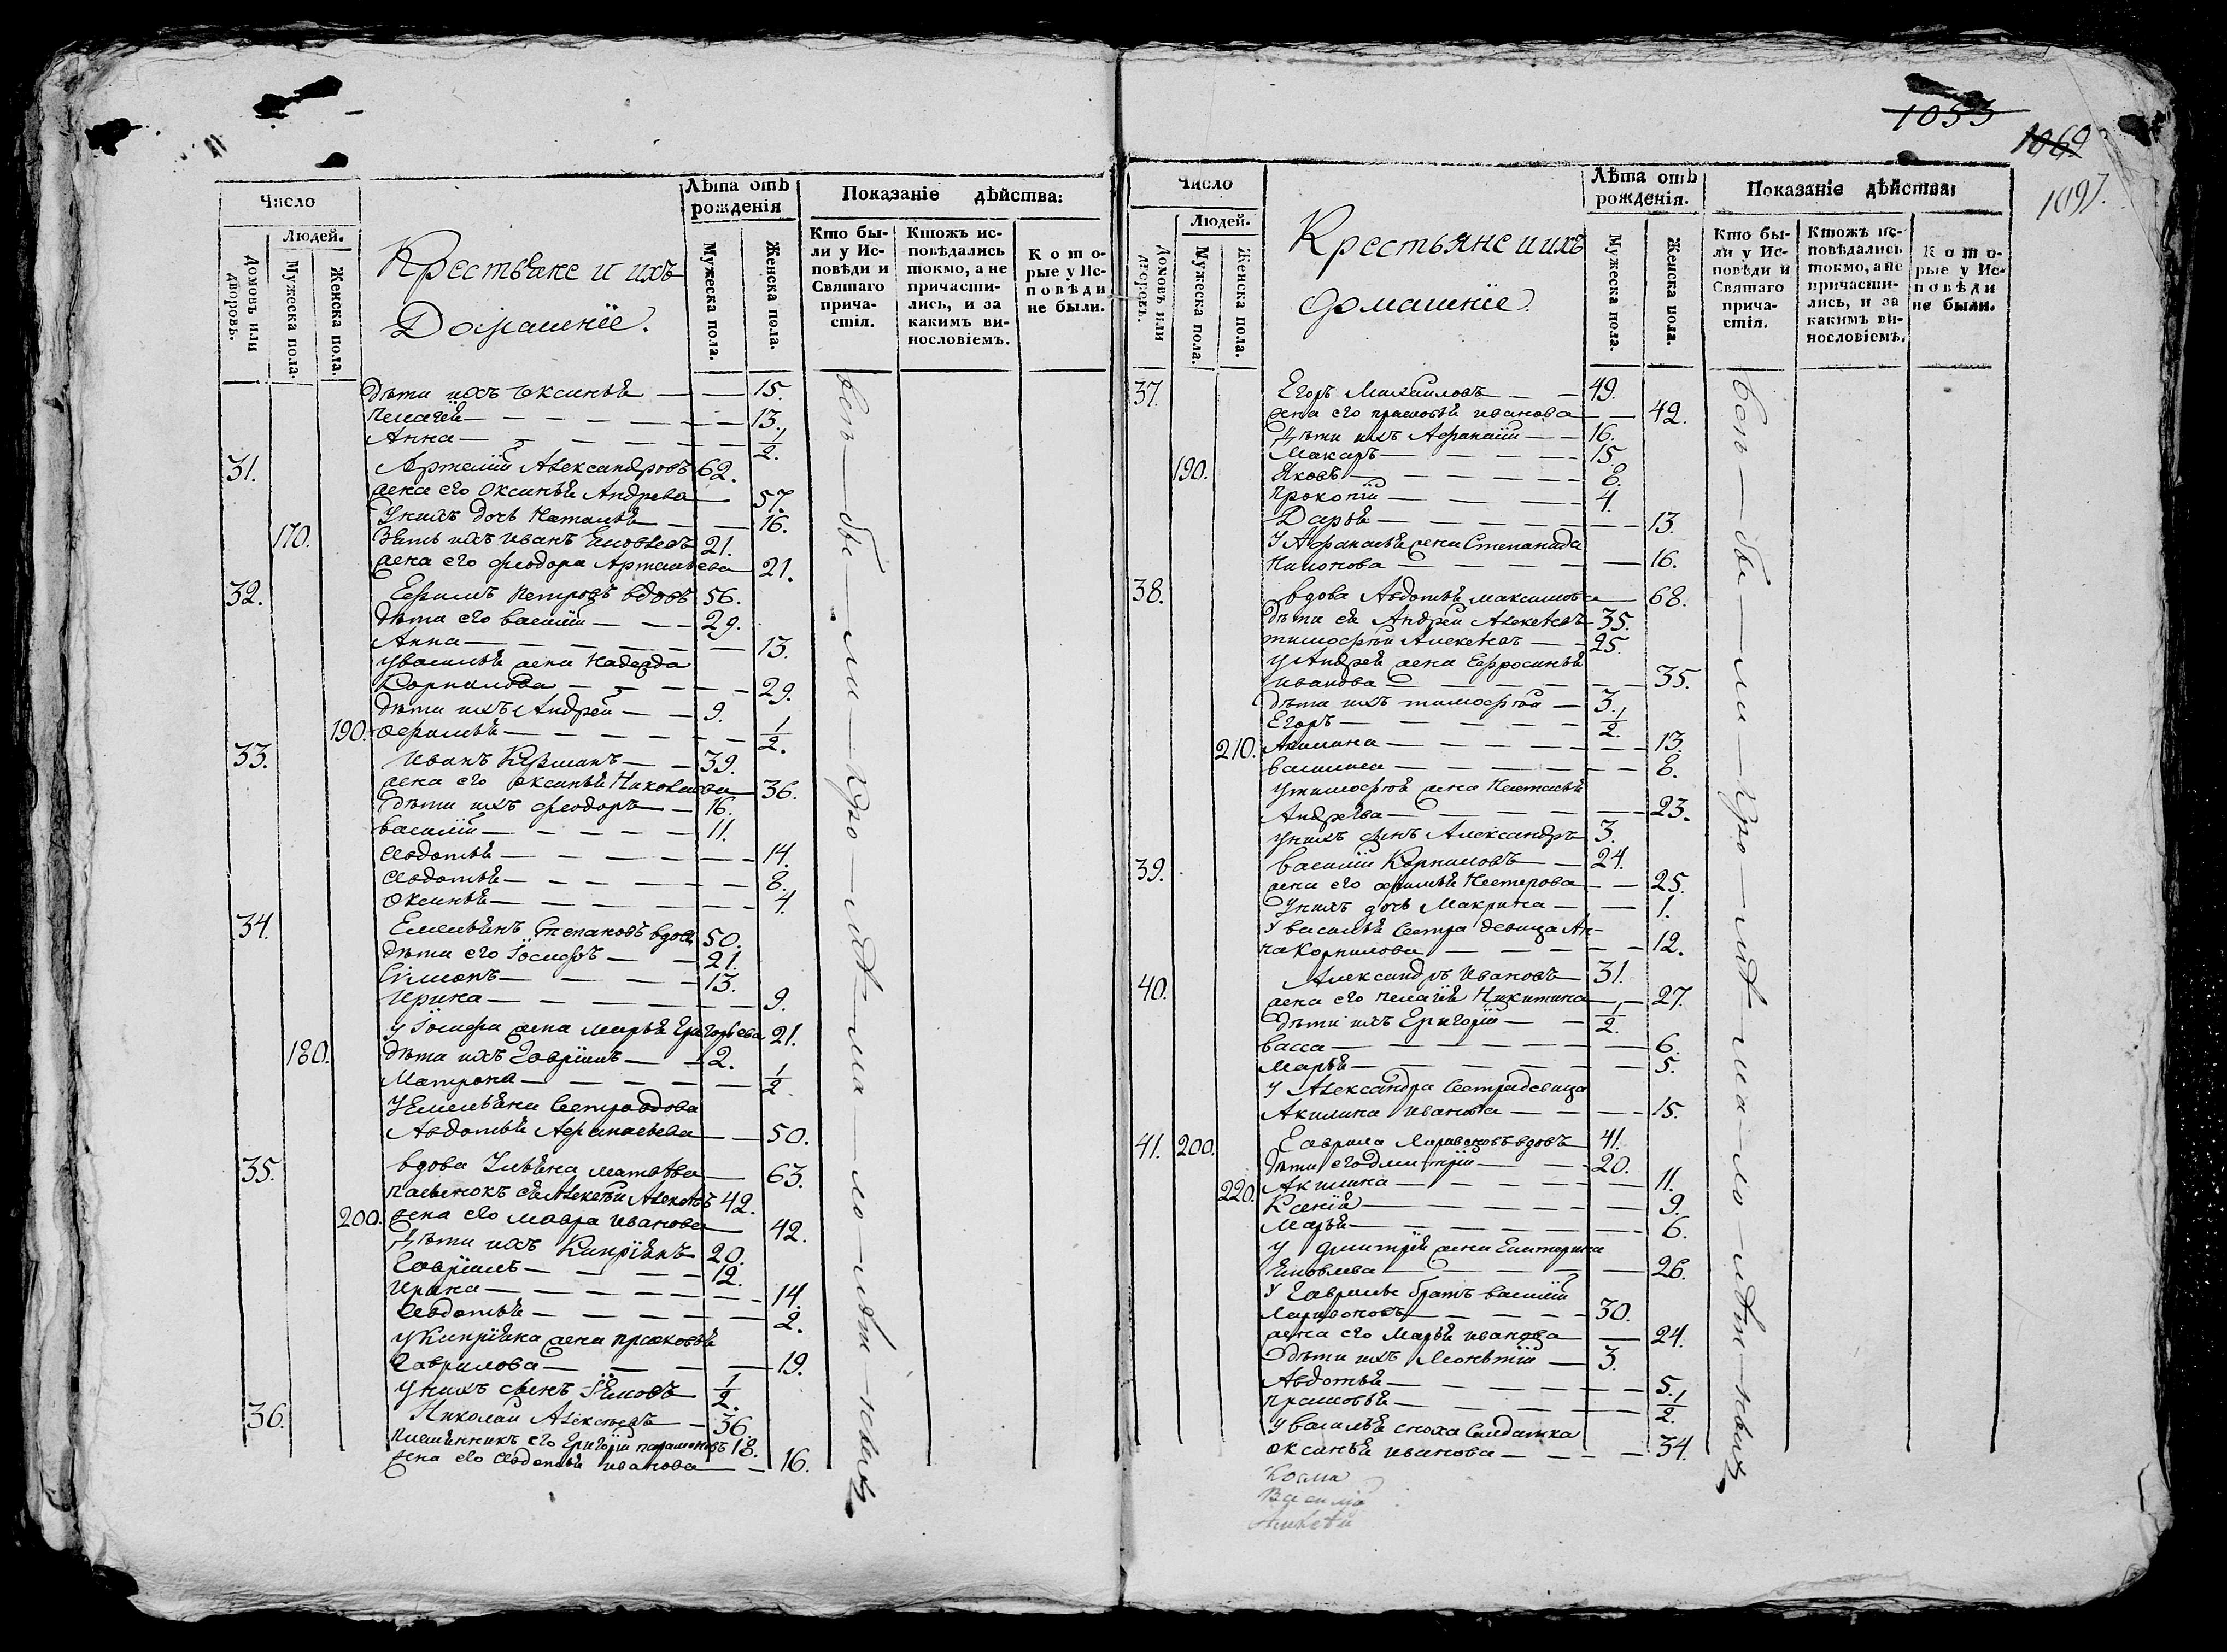 Число
Людей.
Домовъ или дворовъ.
Мужеска пола.
Женска пола.
Крестьяне и ихъ
Домашніе.
Лѣта отъ рожденія
Мужеска пола.
Женска пола.
Показаніе дѣйства:
Кто бы-
ли у Ис-
повѣди и
Святаго
прича-
стія.
Ктожъ ис-
повѣдались
токмо, а не
причасти-
лись, и за
какимъ ви-
нословіемъ.
К о т о-
рые у Ис-
п о в ѣ д и
не были.
дѣти ихъ Оксинья — — 15.
Пелагея — — 13.
Анна — — 1/2.
31. Артемій Александровъ 62.
жена его Оксинья Андрева — 57.
У нихъ дочь Наталья — — 16.
170. Зять ихъ Иванъ Яковлевъ 21.
жена его Феодора Артемьева — 21.
32. Ефимъ Петровъ вдовъ 56.
дѣти его Василій — — 29.
Анна — — 13.
У Василья жена Надежда
Корнилова — — 29.
дѣти ихъ Андрей — — 9.
190. Офимья — — 1/2.
33. Иванъ Кузминъ — — 39.
жена его Оксинья Николаева — 36.
дѣти ихъ Феодоръ — 16.
Василій — — 11.
Авдотья — — 14.
Авдотья — — 8.
Оксинья — — 4.
34. Емельянъ Степановъ вдовъ 50.
дѣти его Іосифъ — — 21.
Симионъ — — 13.
Ирина — — 9.
У Іосифа жена Марья Григорьева 21.
180. дѣти ихъ Гавріилъ — — 2.
Матрона — — 1/2.
У Емельяна сестра вдова
Авдотья Афонасьева — — 50.
35. вдова Ульяна Матвѣева — 63.
пасынокъ ея Алексѣй Алексѣевъ 42.
200. жена его Мавра Иванова — 42.
Дѣти ихъ Кипріянъ 20.
Гавріилъ — — 12.
Ирина — — 14.
Авдотья — — 2.
У Кипріяна жена Прасковья
Гаврилова — — 19.
У нихъ сынъ Іяковъ 1/2.
36. Николай Алексѣевъ — 36.
племянникъ его Григорій Парамоновъ 18.
жена его Авдотья Иванова — — 16.
всѣ — бы — ли — про — лѣт — ма — ло — лѣт — ныхъ
1053
1069
1097.
Число
Людей.
Домовъ или дворовъ.
Мужеска пола.
Женска пола.
Крестьяне и ихъ
домашніе.
Лѣта отъ рожденія.
Мужеска пола.
Женска пола.
Показаніе дѣйства:
Кто бы-
ли у Ис-
повѣди и
Святаго
прича-
стія.
Ктожъ ис-
повѣдались
токмо, а не
причасти-
лись, и за
какимъ ви-
нословіемъ.
К о т о-
рые у Ис-
п о в ѣ д и
не были.
37. Егоръ Михайловъ — — 49.
жена его Прасковья Иванова — — 42.
Дѣти ихъ Афанасій — — 16.
Макаръ — — 15.
190. Яковъ — — 8.
Прокопій — — 4.
Дарья — — 13.
У Афанасья жена Степанида
Нионова — — 16.
38. вдова Авдотья Максимова — 68.
дѣти ея Андрей Алексѣевъ 35.
Тимофѣй Алексѣевъ — — 25.
У Андрея жена Ефросинья
Иванова — — 35.
дѣти ихъ Тимофѣй — 3.
Егоръ — — 1/2.
210. Акилина — — 13.
Василиса — — 8.
У Тимофѣя жена Настасья
Андрева — — 23.
У нихъ сынъ Александръ 3.
39. Василій Корниловъ — — 24.
жена его Офимья Нестерова — — 25.
У нихъ дочь Макрина — — 1.
У Василья сестра девица Ан-
на Корнилова — — 12.
40. Александръ Ивановъ — 31.
жена его Пелагея Никитина — — 27.
дѣти ихъ Григорій — — 1/2.
Васса — — 6.
Марья — — 5.
У Александра сестра девица
Акилина Иванова — — 15.
41. 200. Гаврила Ларивоновъ вдовъ 41.
дѣти его Дмитрій — — 20.
220. Акилина — — 11.
Ксенія — — 9.
Марья — — 6.
У Дмитрія жена Екатерина
Яковлева — — 26.
У Гаврилы братъ Василій
Ларивоновъ — — 30.
жена его Марья Иванова — 24.
дѣти ихъ Леонтій — 3.
Авдотья — — 5.
Прасковья — — 1/2.
У Василья сноха салдатка
Оксинья Иванова — — 34.
всѣ — бы — ли — про — лѣт — ма — ло — лѣт — ныхъ
Косма
Василій
Алексѣй